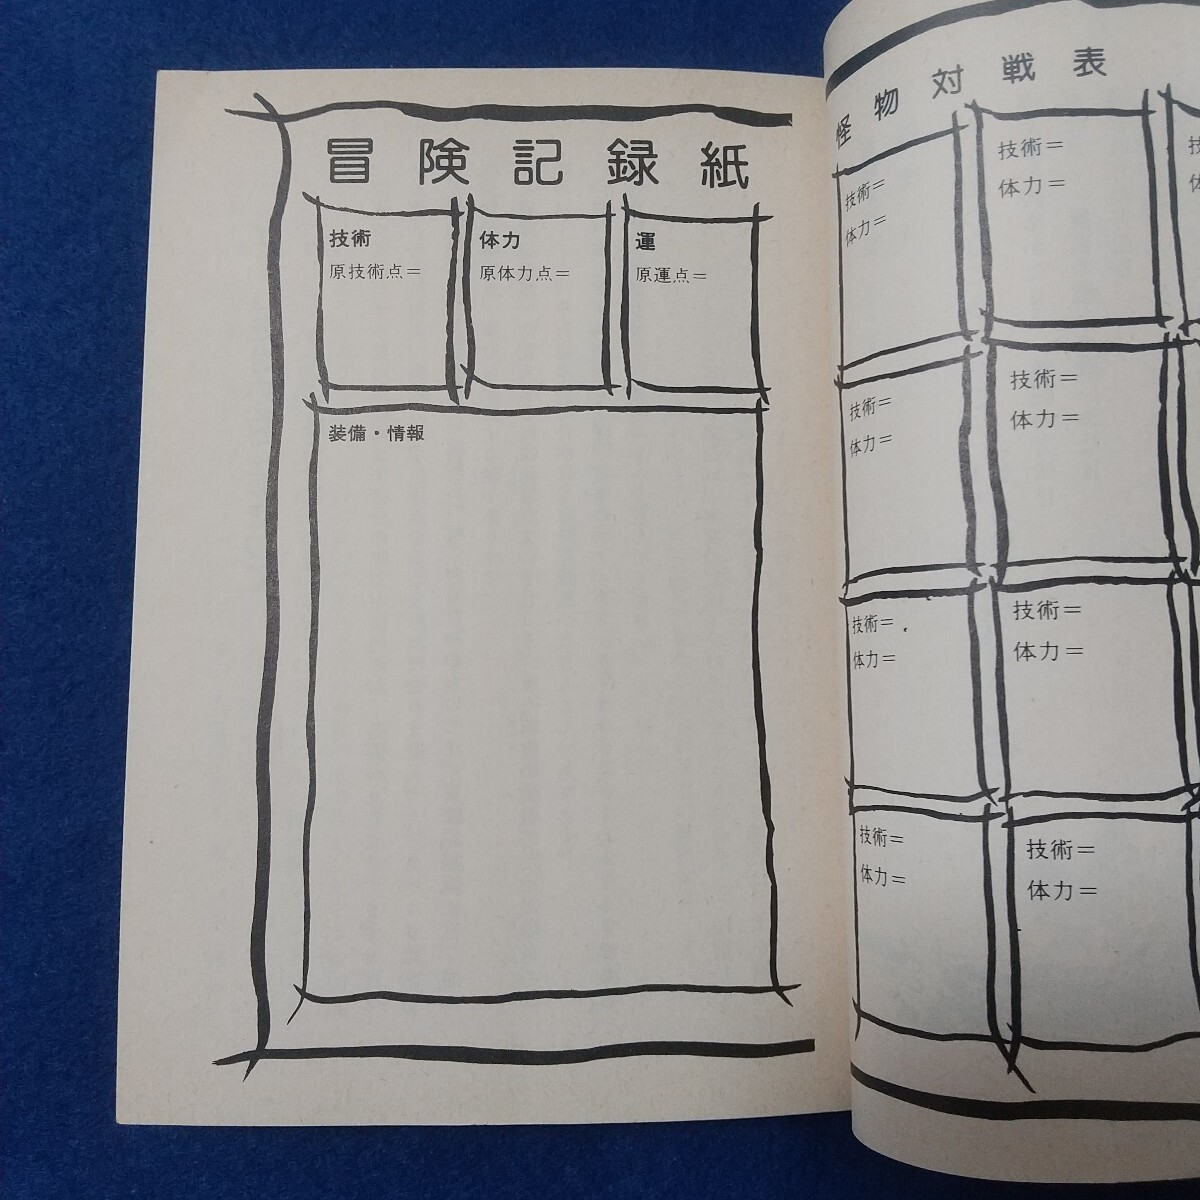 冒険記録紙
技術
原技術点＝
体力
原体力点＝
運
原運点＝
装備・情報
怪物対戦表
技術＝
体力＝
技術＝
体力＝
技
体
技術＝
体力＝
技術＝
体力＝
技術＝
体力＝
技術＝
体力＝
技術＝
体力＝
技術＝
体力＝